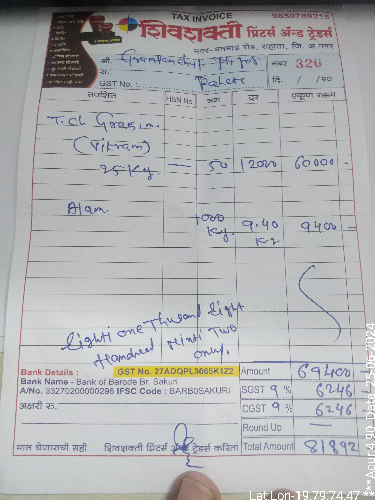 TAX INVOICE
9850789215
शिवशक्ती प्रिंटर्स ॲन्ड ट्रेडर्स
नगर-मनमाड रोड, राहाता, जि. अ.नगर
श्री. Grampanchayat
नंबर 326
रा.
GST No. :
दि. / /२०
तपशिल HSN No नग दर एकूण रक्कम
T.C.L
(Vikram)
25 Kg. — 50 1200 60000 -
Alam 1000 Kg. 9.40 9400 -
Eighti one Thusand Eight
Handred Ninti Two
only.
Bank Details : GST No. 27ADQPL3665K1Z2
Amount 69400 -
Bank Name - Bank of Barode Br. Sakuri
SGST 9 % 6246 -
A/No. 33270200000296 IFSC Code : BARB0SAKURI
CGST 9 % 6246 -
अक्षरी रु.
Round Up —
माल घेणाराची सही शिवशक्ती प्रिंटर्स ॲन्ड ट्रेडर्स करिता
Total Amount 81892
Lat,Lon-19.79,74.47 ***Acur:4.90 Date:25-06-2024